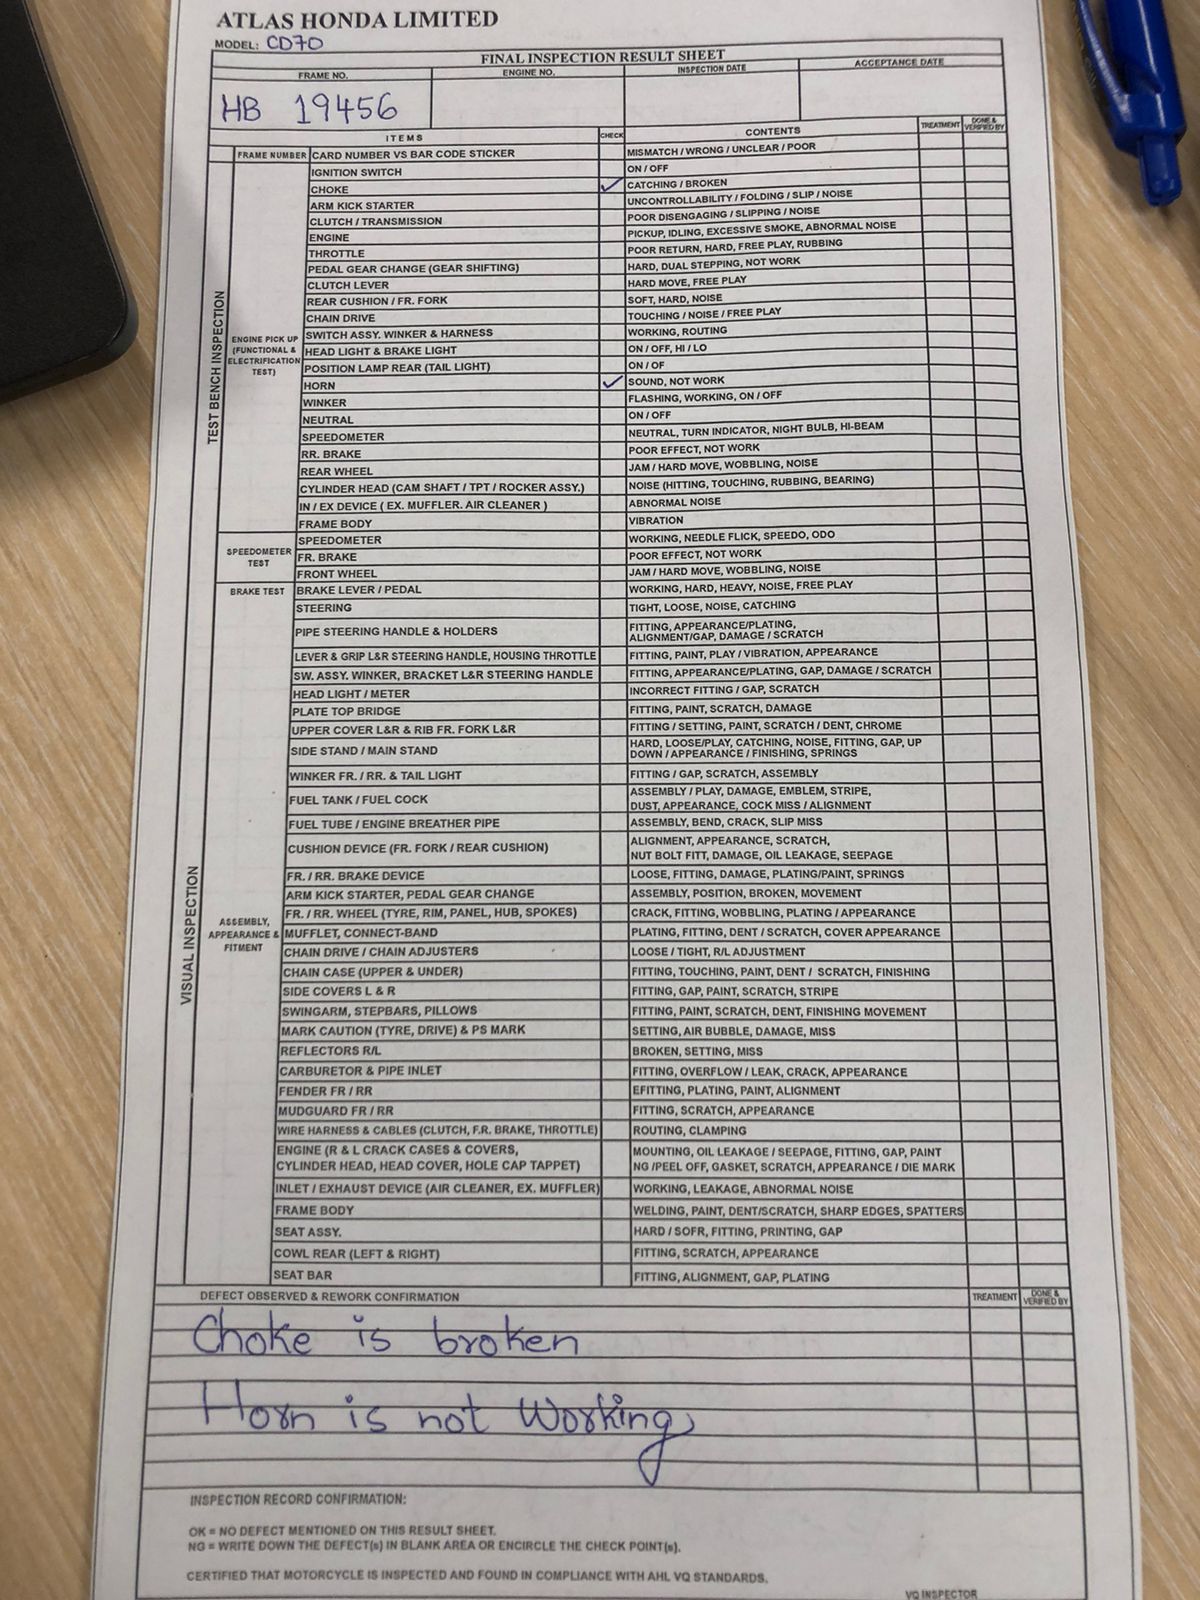 ATLAS HONDA LIMITED
MODEL: CD70
FINAL INSPECTION RESULT SHEET
FRAME NO. ENGINE NO. INSPECTION DATE ACCEPTANCE DATE
HB 19456
ITEMS CHECK CONTENTS TREATMENT DONE & VERIFIED BY
TEST BENCH INSPECTION
FRAME NUMBER CARD NUMBER VS BAR CODE STICKER MISMATCH / WRONG / UNCLEAR / POOR
ENGINE PICK UP (FUNCTIONAL & ELECTRIFICATION TEST)
IGNITION SWITCH ON / OFF
CHOKE ✓ CATCHING / BROKEN
ARM KICK STARTER UNCONTROLLABILITY / FOLDING / SLIP / NOISE
CLUTCH / TRANSMISSION POOR DISENGAGING / SLIPPING / NOISE
ENGINE PICKUP, IDLING, EXCESSIVE SMOKE, ABNORMAL NOISE
THROTTLE POOR RETURN, HARD, FREE PLAY, RUBBING
PEDAL GEAR CHANGE (GEAR SHIFTING) HARD, DUAL STEPPING, NOT WORK
CLUTCH LEVER HARD MOVE, FREE PLAY
REAR CUSHION / FR. FORK SOFT, HARD, NOISE
CHAIN DRIVE TOUCHING / NOISE / FREE PLAY
SWITCH ASSY. WINKER & HARNESS WORKING, ROUTING
HEAD LIGHT & BRAKE LIGHT ON / OFF, HI / LO
POSITION LAMP REAR (TAIL LIGHT) ON / OF
HORN ✓ SOUND, NOT WORK
WINKER FLASHING, WORKING, ON / OFF
NEUTRAL ON / OFF
SPEEDOMETER NEUTRAL, TURN INDICATOR, NIGHT BULB, HI-BEAM
RR. BRAKE POOR EFFECT, NOT WORK
REAR WHEEL JAM / HARD MOVE, WOBBLING, NOISE
CYLINDER HEAD (CAM SHAFT / TPT / ROCKER ASSY.) NOISE (HITTING, TOUCHING, RUBBING, BEARING)
IN / EX DEVICE ( EX. MUFFLER. AIR CLEANER ) ABNORMAL NOISE
FRAME BODY VIBRATION
SPEEDOMETER TEST
SPEEDOMETER WORKING, NEEDLE FLICK, SPEEDO, ODO
FR. BRAKE POOR EFFECT, NOT WORK
FRONT WHEEL JAM / HARD MOVE, WOBBLING, NOISE
BRAKE TEST BRAKE LEVER / PEDAL WORKING, HARD, HEAVY, NOISE, FREE PLAY
VISUAL INSPECTION
ASSEMBLY, APPEARANCE & FITMENT
STEERING TIGHT, LOOSE, NOISE, CATCHING
PIPE STEERING HANDLE & HOLDERS FITTING, APPEARANCE/PLATING,
ALIGNMENT/GAP, DAMAGE / SCRATCH
LEVER & GRIP L&R STEERING HANDLE, HOUSING THROTTLE FITTING, PAINT, PLAY / VIBRATION, APPEARANCE
SW. ASSY. WINKER, BRACKET L&R STEERING HANDLE FITTING, APPEARANCE/PLATING, GAP, DAMAGE / SCRATCH
HEAD LIGHT / METER INCORRECT FITTING / GAP, SCRATCH
PLATE TOP BRIDGE FITTING, PAINT, SCRATCH, DAMAGE
UPPER COVER L&R & RIB FR. FORK L&R FITTING / SETTING, PAINT, SCRATCH / DENT, CHROME
SIDE STAND / MAIN STAND HARD, LOOSE/PLAY, CATCHING, NOISE, FITTING, GAP, UP
DOWN / APPEARANCE / FINISHING, SPRINGS
WINKER FR. / RR. & TAIL LIGHT FITTING / GAP, SCRATCH, ASSEMBLY
FUEL TANK / FUEL COCK ASSEMBLY / PLAY, DAMAGE, EMBLEM, STRIPE,
DUST, APPEARANCE, COCK MISS / ALIGNMENT
FUEL TUBE / ENGINE BREATHER PIPE ASSEMBLY, BEND, CRACK, SLIP MISS
CUSHION DEVICE (FR. FORK / REAR CUSHION) ALIGNMENT, APPEARANCE, SCRATCH,
NUT BOLT FITT, DAMAGE, OIL LEAKAGE, SEEPAGE
FR. / RR. BRAKE DEVICE LOOSE, FITTING, DAMAGE, PLATING/PAINT, SPRINGS
ARM KICK STARTER, PEDAL GEAR CHANGE ASSEMBLY, POSITION, BROKEN, MOVEMENT
FR. / RR. WHEEL (TYRE, RIM, PANEL, HUB, SPOKES) CRACK, FITTING, WOBBLING, PLATING / APPEARANCE
MUFFLET, CONNECT-BAND PLATING, FITTING, DENT / SCRATCH, COVER APPEARANCE
CHAIN DRIVE / CHAIN ADJUSTERS LOOSE / TIGHT, R/L ADJUSTMENT
CHAIN CASE (UPPER & UNDER) FITTING, TOUCHING, PAINT, DENT / SCRATCH, FINISHING
SIDE COVERS L & R FITTING, GAP, PAINT, SCRATCH, STRIPE
SWINGARM, STEPBARS, PILLOWS FITTING, PAINT, SCRATCH, DENT, FINISHING MOVEMENT
MARK CAUTION (TYRE, DRIVE) & PS MARK SETTING, AIR BUBBLE, DAMAGE, MISS
REFLECTORS R/L BROKEN, SETTING, MISS
CARBURETOR & PIPE INLET FITTING, OVERFLOW / LEAK, CRACK, APPEARANCE
FENDER FR / RR EFITTING, PLATING, PAINT, ALIGNMENT
MUDGUARD FR / RR FITTING, SCRATCH, APPEARANCE
WIRE HARNESS & CABLES (CLUTCH, F.R. BRAKE, THROTTLE) ROUTING, CLAMPING
ENGINE (R & L CRACK CASES & COVERS, MOUNTING, OIL LEAKAGE / SEEPAGE, FITTING, GAP, PAINT
CYLINDER HEAD, HEAD COVER, HOLE CAP TAPPET) NG /PEEL OFF, GASKET, SCRATCH, APPEARANCE / DIE MARK
INLET / EXHAUST DEVICE (AIR CLEANER, EX. MUFFLER) WORKING, LEAKAGE, ABNORMAL NOISE
FRAME BODY WELDING, PAINT, DENT/SCRATCH, SHARP EDGES, SPATTERS
SEAT ASSY. HARD / SOFR, FITTING, PRINTING, GAP
COWL REAR (LEFT & RIGHT) FITTING, SCRATCH, APPEARANCE
SEAT BAR FITTING, ALIGNMENT, GAP, PLATING
DEFECT OBSERVED & REWORK CONFIRMATION TREATMENT DONE & VERIFIED BY
Choke is broken
Horn is not Working
INSPECTION RECORD CONFIRMATION:
OK = NO DEFECT MENTIONED ON THIS RESULT SHEET.
NG = WRITE DOWN THE DEFECT(s) IN BLANK AREA OR ENCIRCLE THE CHECK POINT(s).
CERTIFIED THAT MOTORCYCLE IS INSPECTED AND FOUND IN COMPLIANCE WITH AHL VQ STANDARDS.
VQ INSPECTOR